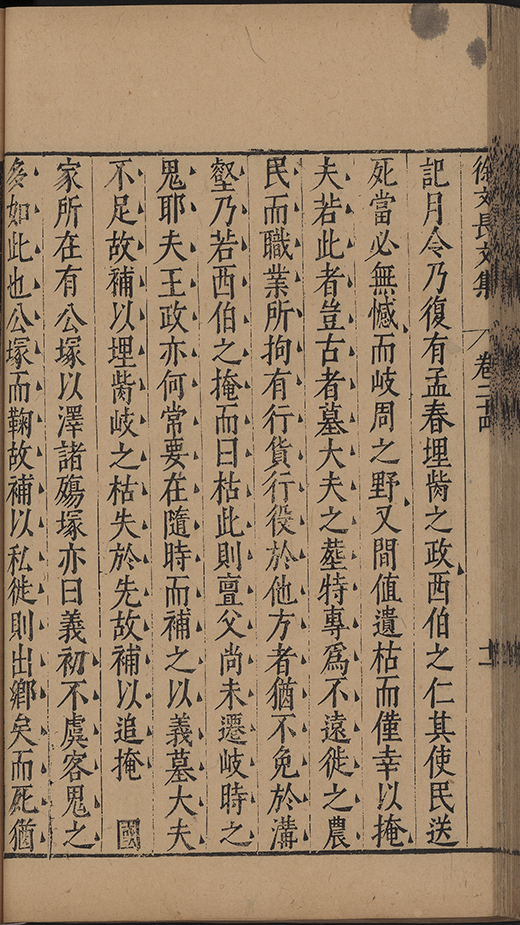 徐文長文集 卷二十四 十一
記月令乃復有孟春埋胔之政西伯之仁其使民送
死當必無憾而岐周之野又間值遺枯而僅幸以掩
夫若此者豈古者墓大夫之塟特專爲不遠徙之農
民而職業所拘有行貨行役於他方者猶不免於溝
壑乃若西伯之掩而曰枯此則亶父尚未遷岐時之
鬼耶夫王政亦何常要在隨時而補之以義墓大夫
不足故補以埋胔岐之枯失於先故補以追掩 國
家所在有公塚以澤諸殤塚亦曰義初不虞客鬼之
多如此也公塚而鞠故補以私徙則出鄉矣而死猶